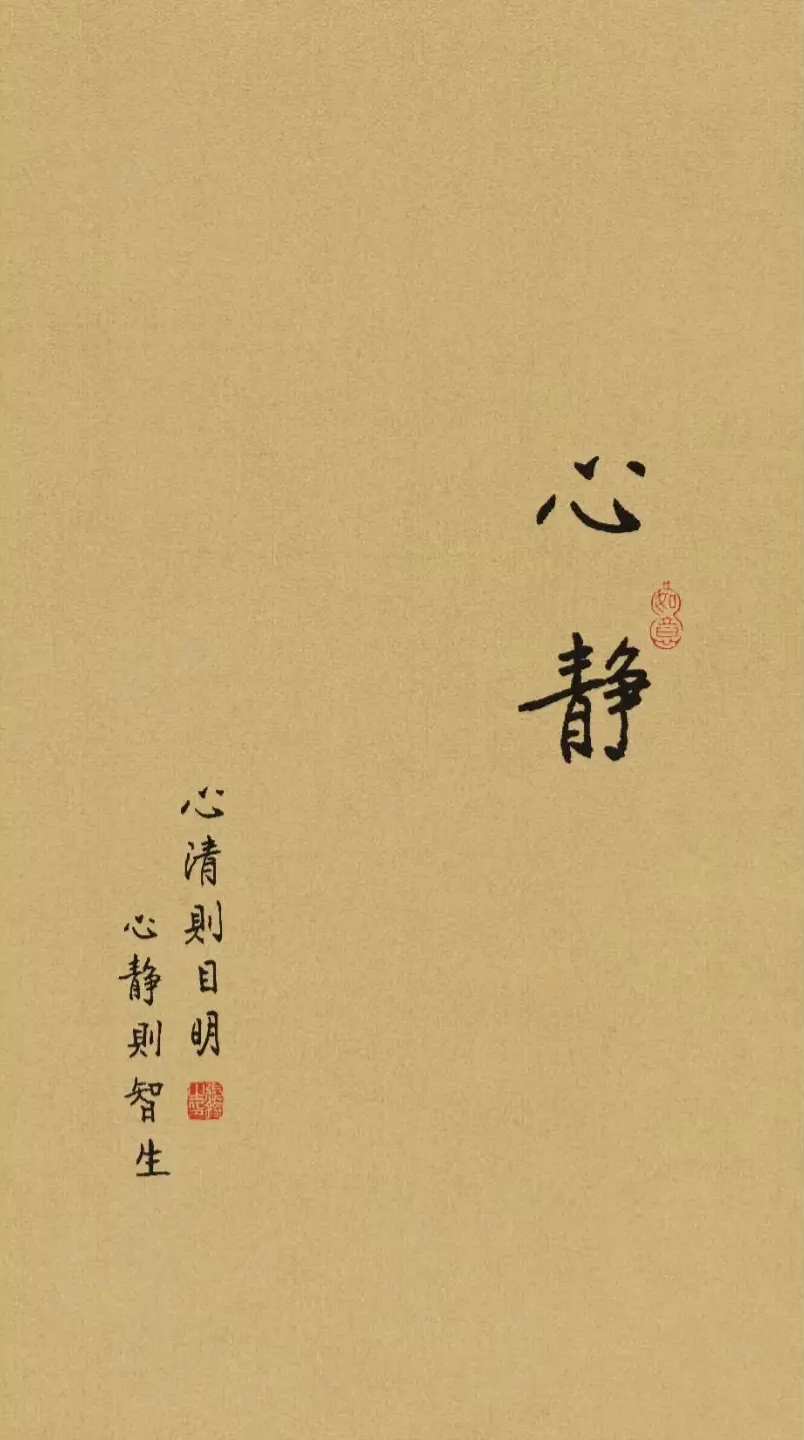 心静
如意
心清則目明
心静則智生